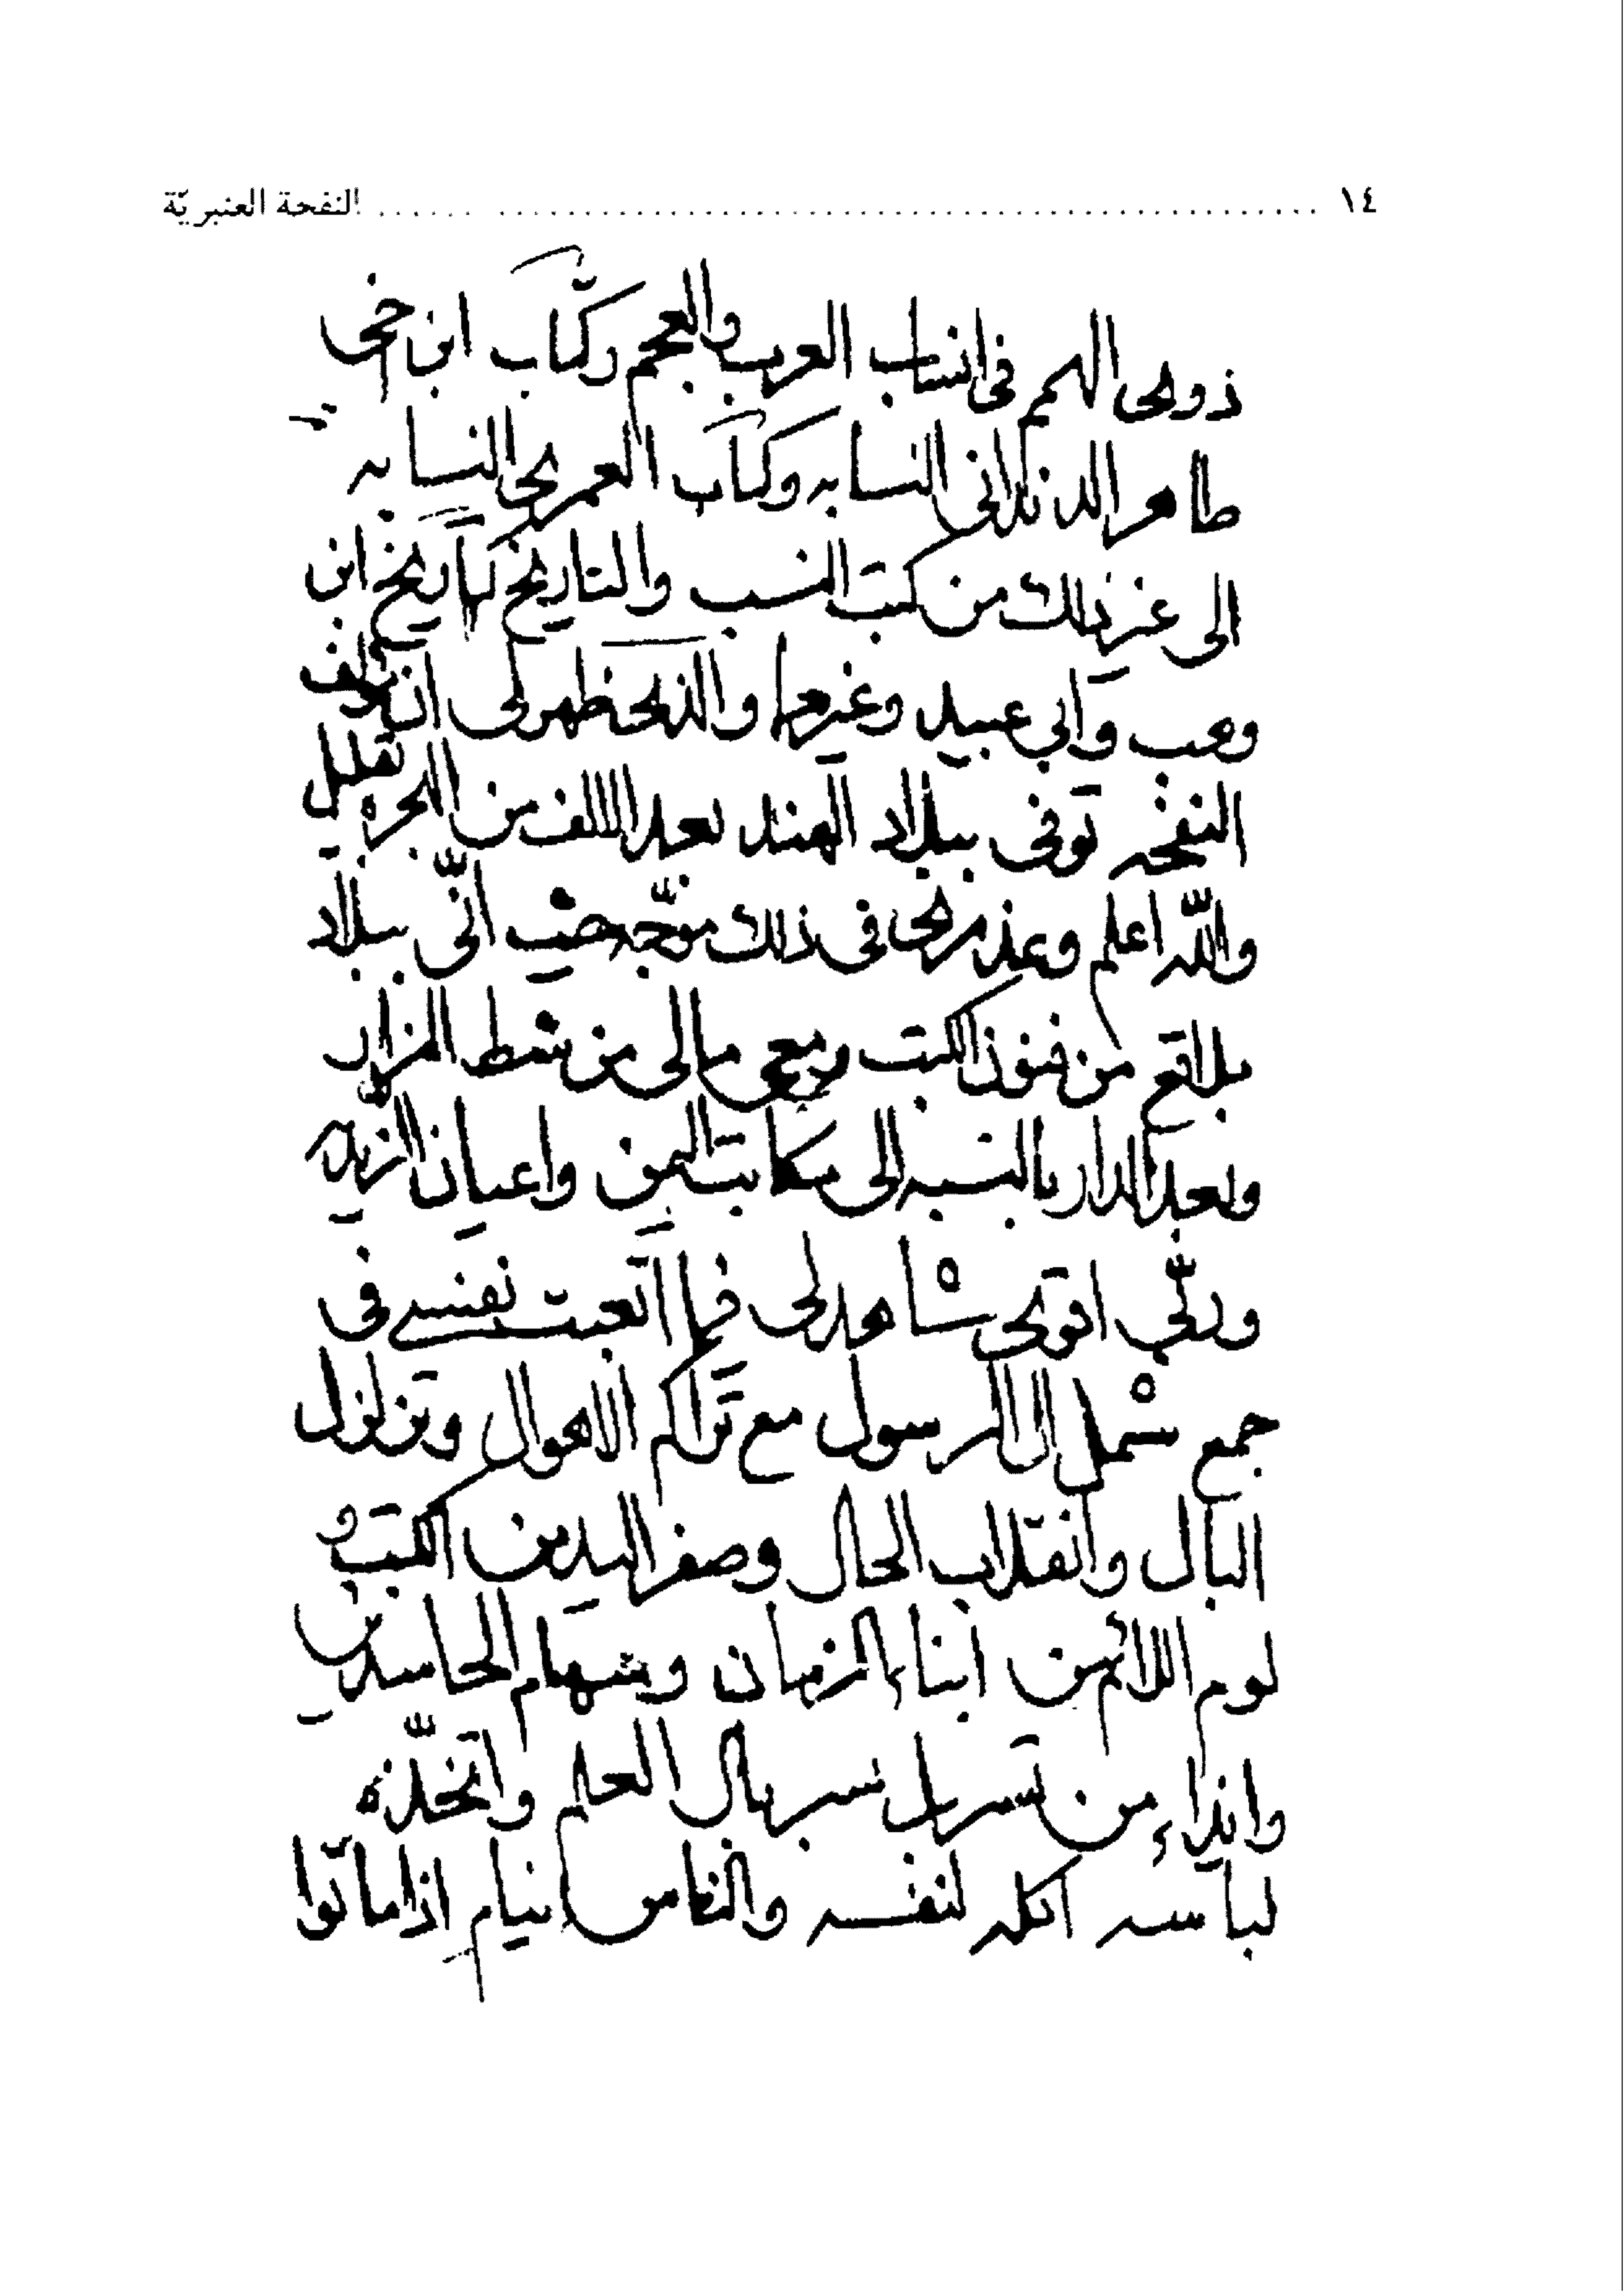 ١٤ ........ النفحة العنبريّة
ذوى الهمم فى انساب العرب والعجم وكتاب ابن اخى
طاهر الدندانى النسابه وكتاب العمرى النسابه
الى غير ذلك من كتب النسب والتاريخ كتاريخ ابن
وهب وابي عبيد وغيرهما والذى ظهر لى ان مؤلف
النفحه توفى ببلاد الهند بعد الالف من الهجره
والله اعلم وعذرى فى ذلك متوجّه حيث انّى ببلاد
بلاقع من فنون الكتب ومعى مالى من شطط المزار
وبعد الدار بالنسبه الى مكاتيب اليمن واعيان الزيديه
وربّي اقوى شاهد لى فيما اتعبت نفسے فى
جمع شمل ال الرسول مع تراكم الاهوال وتزلزل
البال وانقلاب الحال وصفر اليدين من الكتب و
لوم اللائمين ابناء الزمان وسهام الحاسدين
وايذاء من تسربل سربال العلم واتخذه
لباسه اكله لنفسه والناس نيام اذا ماتوا